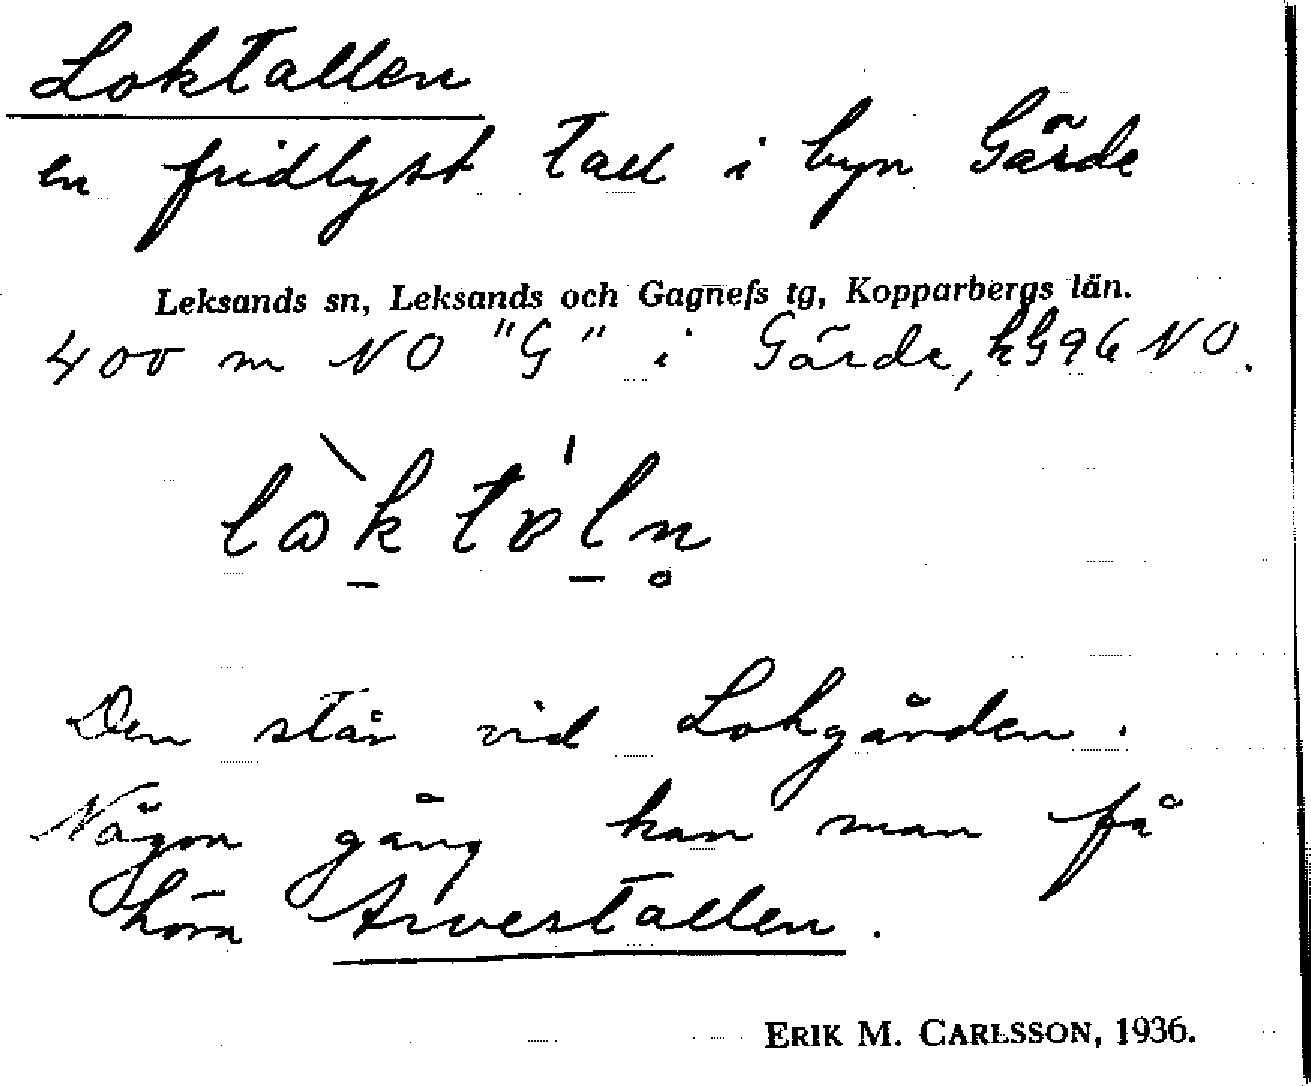 Loktallen
en fridlyst tall i byn Gärde
Leksands sn, Leksands och Gagnefs tg, Kopparbergs län.
400 m NO "G" i Gärde, hG96 NO.
Den står vid Lokgården.
Någon gång kan man få
höra Arvestallen.
ERIK M. CARLSSON, 1936.